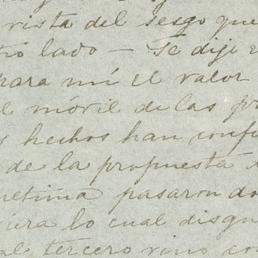 rista del sesgo que
tro lado — Te dije
para mí el valor
el movil de las
hechos han conf
de la propuesta
netima pasaron do
ura lo cual disgu
al tercero vino con